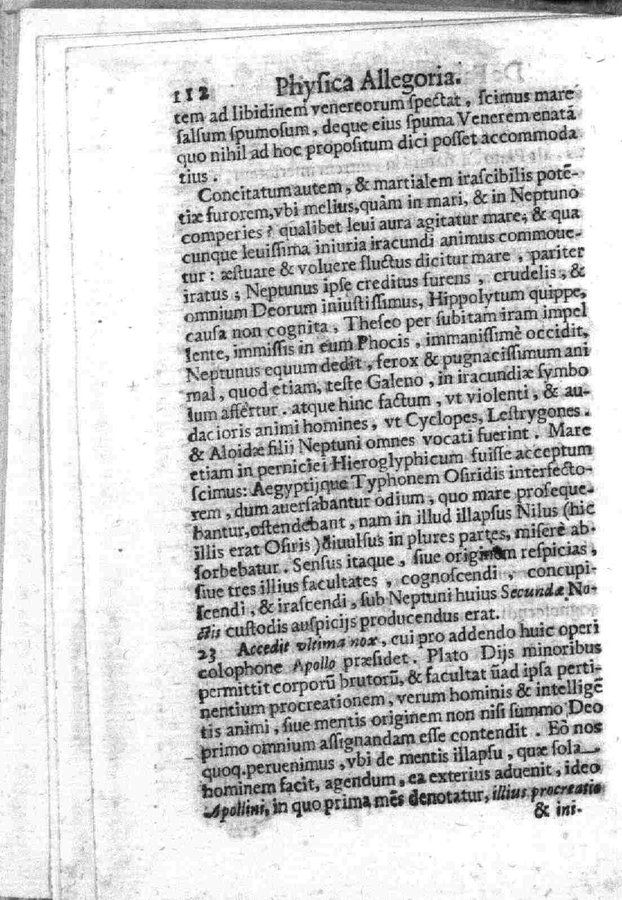 112 Phyſica Allegoria.
tem ad libidinem venereorum ſpectat, ſcimus mare
ſalſum ſpumoſum, deque eius ſpuma Venerem enatã
quo nihil ad hoc propoſitum dici poſſet accommoda
tius.
Concitatum autem, & martialem iraſcibilis potẽ-
tiæ furorem, vbi melius, quàm in mari, & in Neptuno
comperies? qualibet leui aura agitatur mare; & qua
cunque leuiſſima iniuria iracundi animus commoue-
tur: æſtuare & voluere fluctus dicitur mare, pariter
iratus; Neptunus ipſe creditus furens, crudelis, &
omnium Deorum iniuſtiſſimus, Hippolytum quippe,
cauſa non cognita, Theſeo per ſubitam iram impel
lente, immiſſis in eum Phocis, immaniſſimè occidit,
Neptunus equum dedit, ferox & pugnaciſſimum ani
mal, quod etiam, teſte Galeno, in iracundiæ ſymbo
lum affertur. atque hinc factum, vt violenti, & au-
dacioris animi homines, vt Cyclopes, Leſtrygones.
& Aloidæ filij Neptuni omnes vocati fuerint. Mare
etiam in perniciei Hieroglyphicum fuiſſe acceptum
ſcimus: Aegyptijque Typhonem Oſiridis interfecto-
rem, dum auerſabantur odium, quo mare proſeque-
bantur, oſtendebant, nam in illud illapſus Nilus (hic
illis erat Oſiris) diuulſus in plures partes, miſerè ab-
ſorbebatur. Senſus itaque, ſiue originem reſpicias,
ſiue tres illius facultates, cognoſcendi, concupi-
ſcendi, & iraſcendi, ſub Neptuni huius Secundæ No-
ctis cuſtodis auſpicijs producendus erat.
23 Accedit vltima nox, cui pro addendo huic operi
colophone Apollo præſidet. Plato Dijs minoribus
permittit corporũ brutorũ, & facultat ũad ipſa perti-
nentium procreationem, verum hominis & intelligẽ
tis animi, ſiue mentis originem non niſi ſummo Deo
primo omnium aſſignandam eſſe contendit. Eò nos
quoq. peruenimus, vbi de mentis illapſu, quæ ſola
hominem facit, agendum, ea exterius aduenit, ideo
Apollini, in quo prima mẽs denotatur, illius procreatio
& ini-